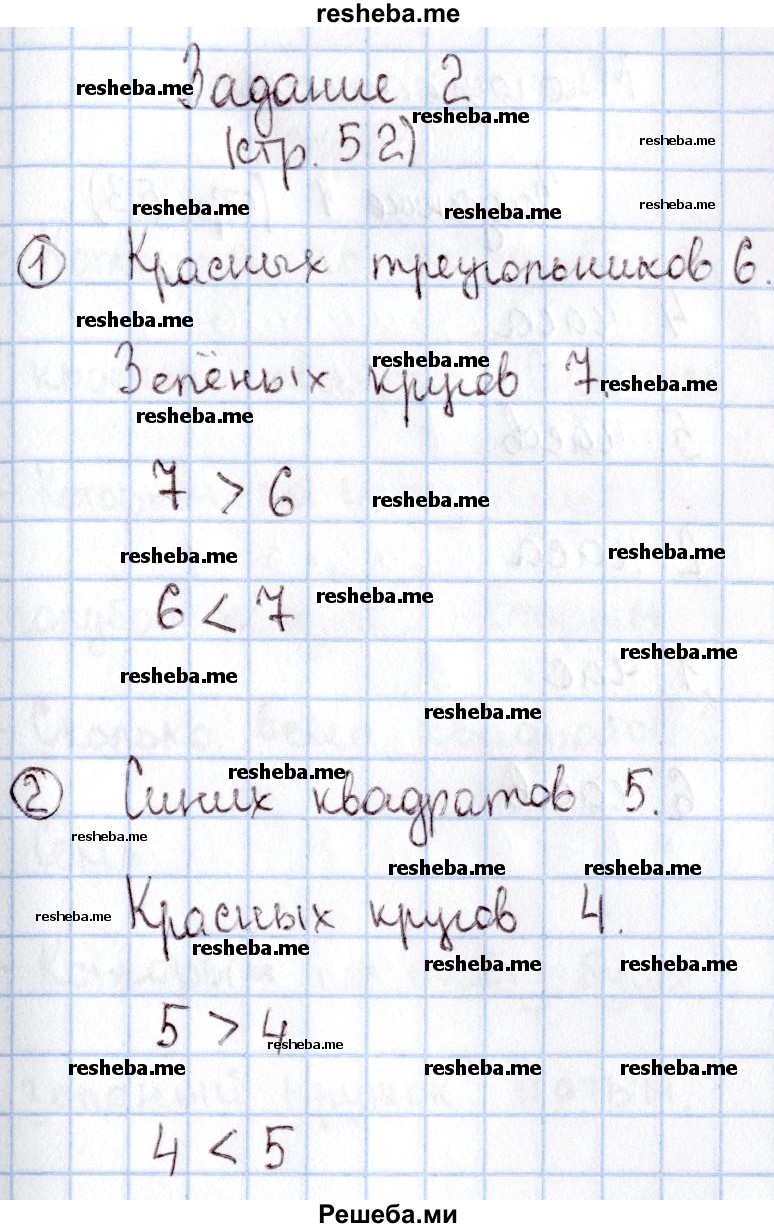 resheba.me
Задание 2
resheba.me
resheba.me
(стр. 52)
resheba.me
resheba.me
resheba.me
resheba.me
① Красных треугольников 6.
resheba.me
resheba.me
Зелёных кругов 7.
resheba.me
resheba.me
7 > 6
resheba.me
resheba.me
resheba.me
6 < 7
resheba.me
resheba.me
resheba.me
resheba.me
resheba.me
② Синих квадратов 5.
resheba.me
resheba.me
resheba.me
Красных кругов 4.
resheba.me
resheba.me
resheba.me
resheba.me
5 > 4
resheba.me
resheba.me
resheba.me
resheba.me
4 < 5
Решеба.ми